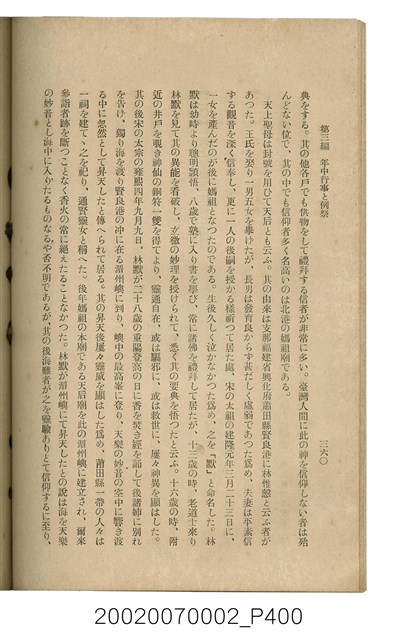 第三編　年中行事と例祭
三六〇
典をする。其の他各戸でも供物をして禮拜する信者が非常に多い。臺灣人間に此の神を信仰しない者は殆
んどない位で、其の中でも信仰者多く名高いのは北港の媽祖廟である。
天上聖母は封號を用ひて天后とも云ふ。其の由來は支那福建省興化府莆田縣賢良港に林惟愨と云ふ者が
あつた。王氏を娶り一男五女を擧げたが、長男は發育良からず甚だしく虛弱であつた爲め、夫妻は平素信
する觀音を深く信奉し、更に一人の後嗣を授かる樣祈つて居た處、宋の太祖の建隆元年三月二十三日に、
一女を產んだのが後に媽祖となつたのである。生後久しく泣かなかつた爲め、之を「默」と命名した。林
默は幼時より聰明頴悟、八歲で塾に入り書を學び、常に諸佛を禮拜して居たが、十三歲の時、老道士來り
林默を見て其の異能を看破し、立微の妙理を授けられて、悉く其の要典を悟つたと云ふ。十六歲の時、附
近の井戶を覗き神仙の銅符一雙を得てより、靈通自在、或は驅邪に、或は救世に、屢々神異を顯はした。
其の後宋の太宗の雍熙四年九月九日、林默が二十八歲の重陽登高の日に香を焚き經を誦して後諸姉に別れ
を告げ、獨り海を渡り賢良港の沖に在る湄州嶼に到り、嶼中の最高峯に登り、天樂の妙音の空中に響き渡
る中に忽然として昇天したと傳へられて居る。其の昇天後屢々靈威を顯はした爲め、莆田縣一帶の人々は
一祠を建てゝ之を祀り、通賢靈女と稱へた。後年媽祖の本廟である天后廟を此の湄州嶼に建立され、爾來
參詣者跡を斷つことなく香火の常に絕えたることなかつた。林默が湄州嶼にて昇天したとの說は海を天樂
の妙音とし海中に入りたるものなるや否不明であるが、其の後海難者が之を靈驗ありとて信仰するに至り、
20020070002_P400